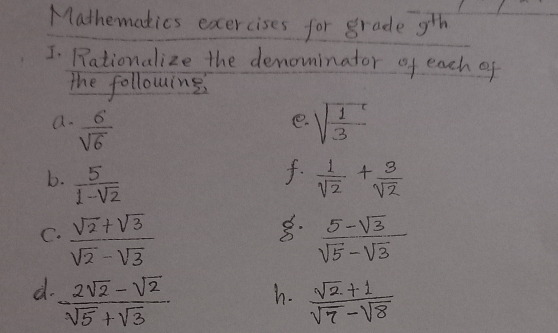 Mathematics exercises for grade 9th
I. Rationalize the denominator of each of
the following;
a. 6/√6
b. 5/(1-√2)
c. (√2+√3)/(√2-√3)
d. (2√2-√2)/(√5+√3)
e. √(1/3)
f. 1/√2 + 3/√2
g. (5-√3)/(√5-√3)
h. (√2+1)/(√7-√8)